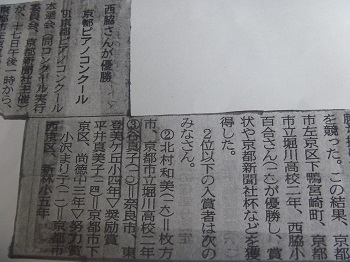 西脇さんが優勝
京都ピアノコンクール
京都ピアノコンクール
本選会(同コンクール実行
委員会、京都新聞社主催)
が、十七日午後一時から、
を競った。この結果、京都
市左京区下鴨宮崎町、京都
市立堀川高校二年、西脇小
百合さん(一七)が優勝し、賞
状や京都新聞社杯などを獲
得した。
2位以下の入賞者は次の
みなさん。
②北村和美(一六)=枚方
市、京都市立堀川高校二年
③谷真子(一一)=奈良市、東
登美ケ丘小四年▽奨励賞
平井真美子(一四)=京都市下
京区、尚徳中三年▽努力賞
小沢まり子(一一)=京都市
西京区、新林小五年